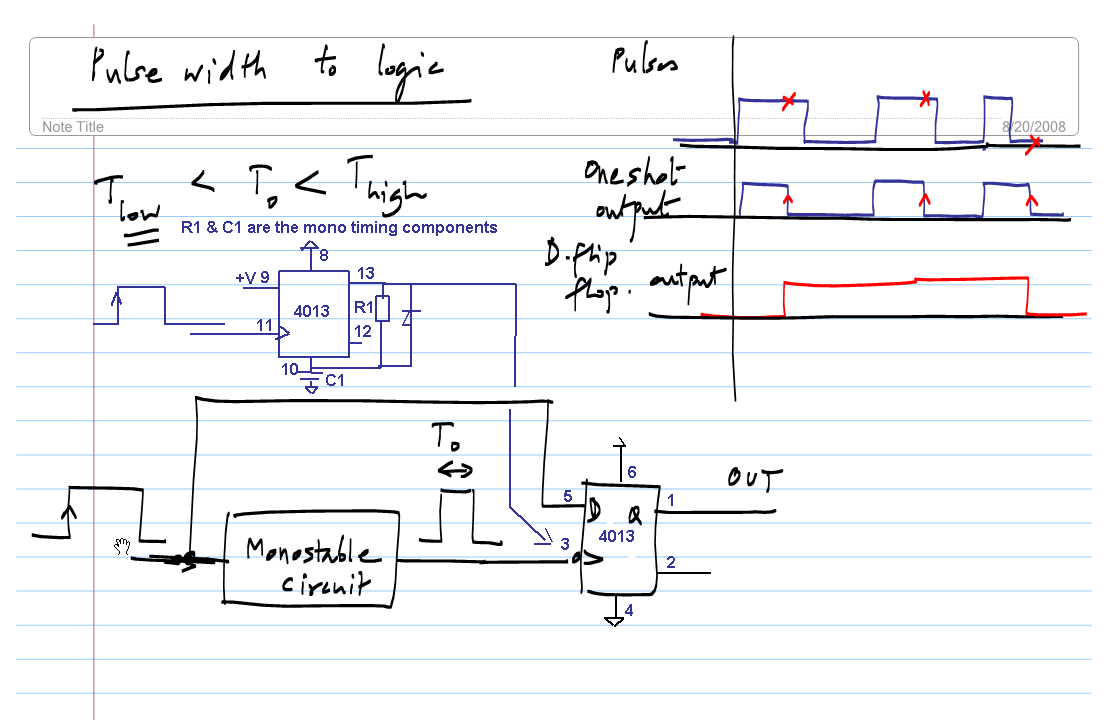 Pulse width to logic
Note Title
Pulses
8/20/2008
Tlow < To < Thigh
R1 & C1 are the mono timing components
Oneshot
output
D.flip
flop. output
8
+V 9
13
4013
R1
11
12
10
C1
To
OUT
6
5
1
D Q
4013
3
2
4
Monostable
circuit